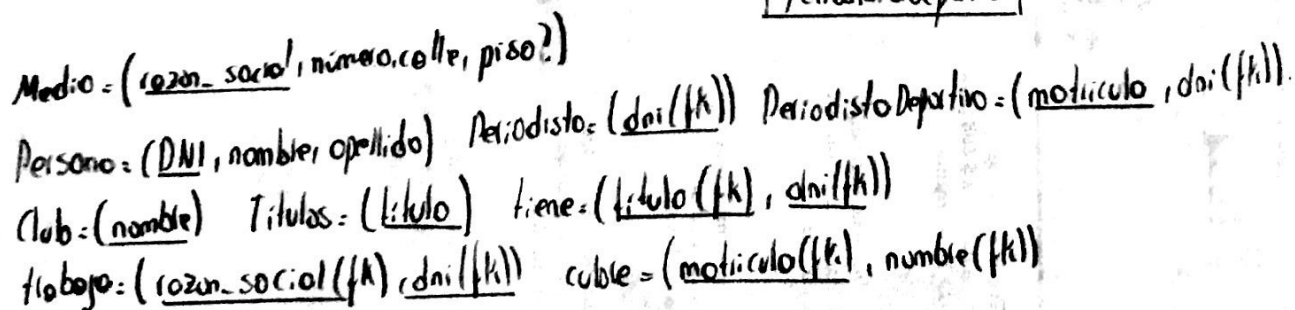 Medio = (razon_social, número, calle, piso?)
Persona = (DNI, nombre, apellido) Periodista = (dni(fk)) PeriodistaDeportivo = (matricula, dni(fk)).
Club = (nombre) Titulos = (titulo) tiene = (titulo(fk), dni(fk))
trabaja = (razon_social(fk), dni(fk)) cubre = (matricula(fk), nombre(fk))